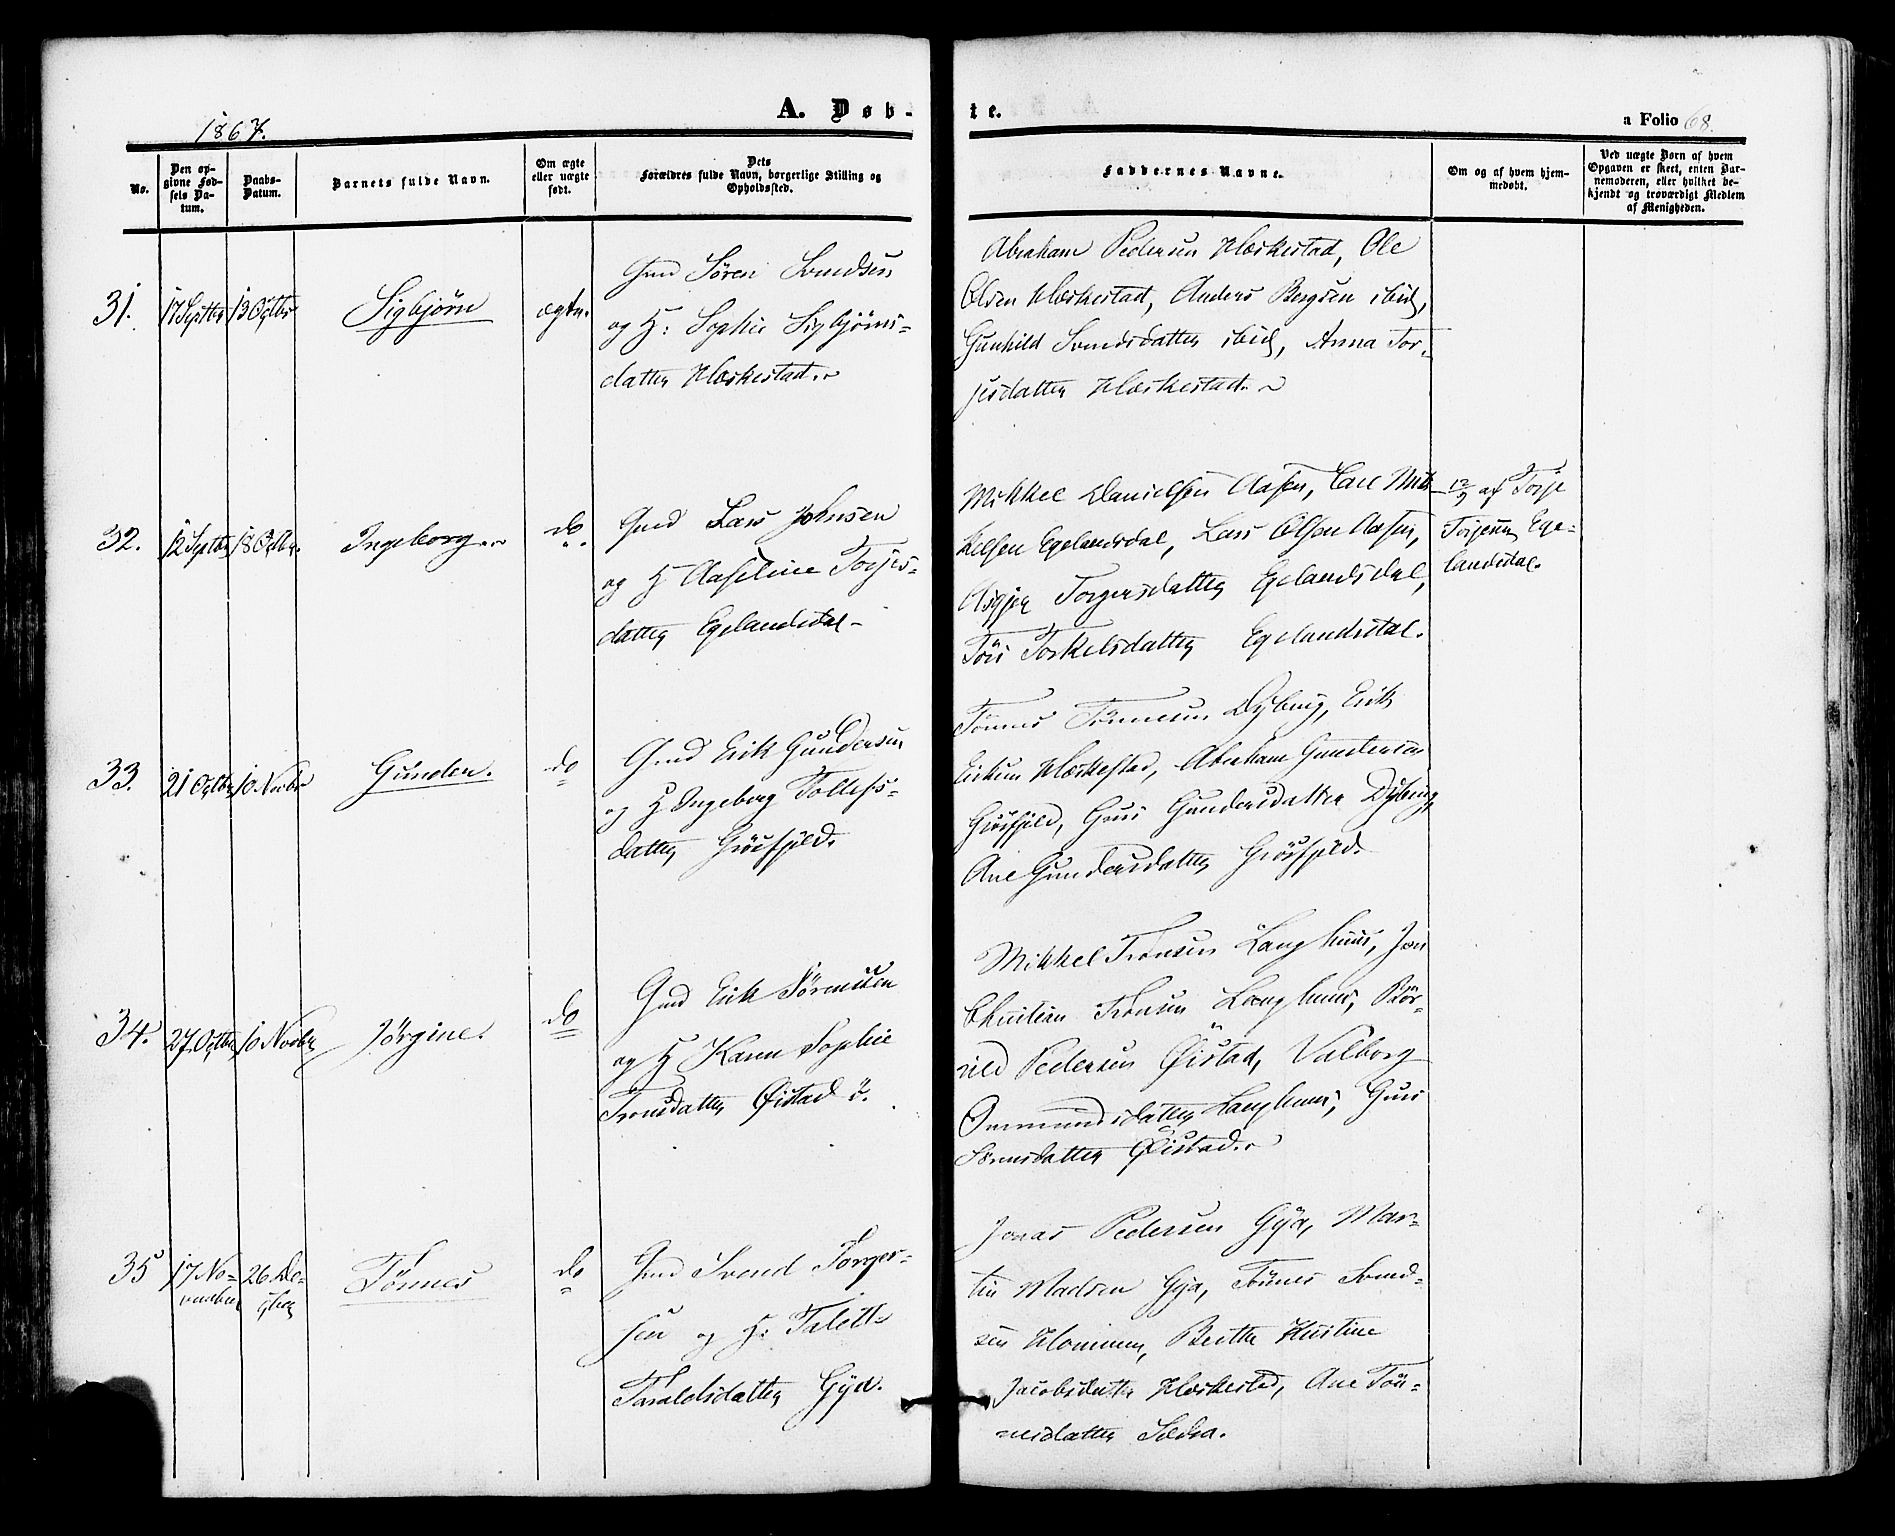 1867.
A. Døb-
te.
a Folio 68.
No.
Den op-
givne Fød-
sels Da-
tum.
Daabs-
Datum.
Barnets fulde Navn.
Om ægte
eller uægte
født.
Dets
Forældres fulde Navn, borgerlige Stilling og
Opholdssted.
Faddernes Navne.
Om og af hvem hjem-
medøbt.
Ved uægte Børn af hvem
Opgaven er skeet, enten Bar-
nemoderen, eller hvilket be-
kjendt og troværdigt Medlem
af Menigheden.
31.
17 Septbr
13 Octbr
Sigbjørn
ægte.
Gmd Søren Svendsen
og H: Sophie Sigbjørns-
datter Hæskestad.
Abraham Pedersen Hæskestad, Ole
Olsen Hæskestad, Anders Bergsen ibid,
Gunhild Svendsdatter ibid, Anna Tor-
jesdatter Hæskestad.
32.
12 Septbr
18 Octbr.
Ingeborg
do.
Gmd Lars Johnsen
og H Aaseline Torjes-
datter Egelandsdal
Mikkel Danielsen Aasen, Carl Mik-
kelsen Egelandsdal, Lars Olsen Aasen,
Asgjer Torgersdatter Egelandsdal,
Torkelsdatter Egelandsdal.
12/9 af Torje
Torjesen Ege-
landsdal.
33.
21 Octbr
10 Novbr
Gunder.
do
Gmd Erik Gundersen
og H Ingeborg Tollefs-
datter Grøsfjeld.
Tønnes Tønnesen Dybing, Erik
Eriksen Hæskestad, Abraham Gundersen
Grøsfjeld, Guri Gundersdatter Dybing,
Ane Gundersdatter Grøsfjeld.
34.
27 Octbr
10 Novbr
Jørgine.
do
Gmd Erik Sørensen
og H Karen Sophie
Tronsdatter Øistad.
Mikkel Tronsen Langhuus, Jan
Christian Tronsen Langhuus, Bør-
ild Pedersen Øistad, Valborg
Ommundsdatter Langhuus, Guri
Sørensdatter Øistad.
35
17 No-
vember
26 De-
cbr
Tønnes
do
Gmd Svend Torger-
sen og H: Talette
Taraldsdatter Gya.
Jonas Pedersen Gya, Mar-
tin Madsen Gya, Tønnes Svend-
sen Hommen, Berthe Kristine
Jacobsdatter Hæskestad, Ane Tøn-
nesdatter Sædra.